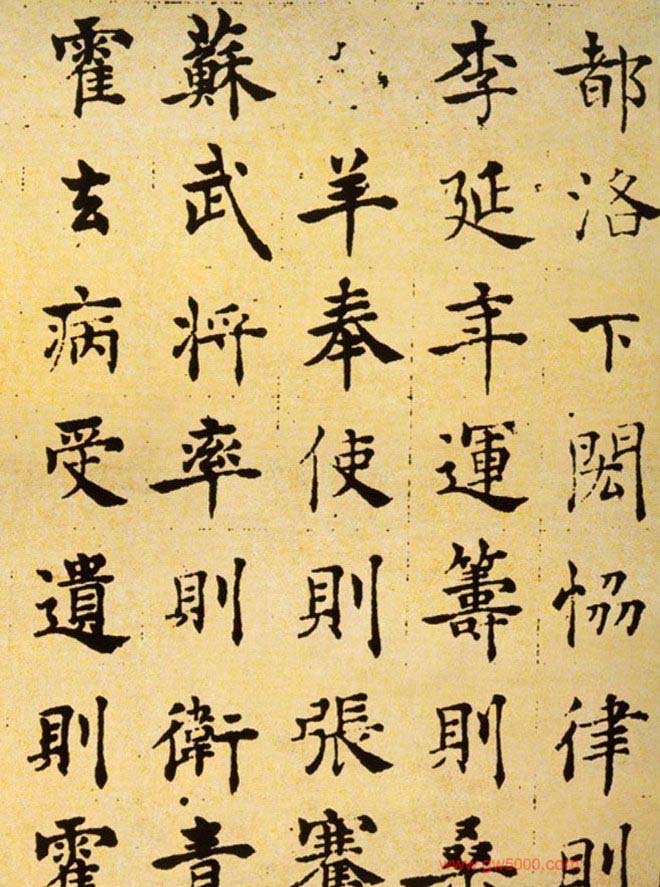 都洛下閎恊律則
李延年運籌則桑
羊奉使則張騫
蘇武將率則衛青
霍去病受遺則霍
www.gw5000.com